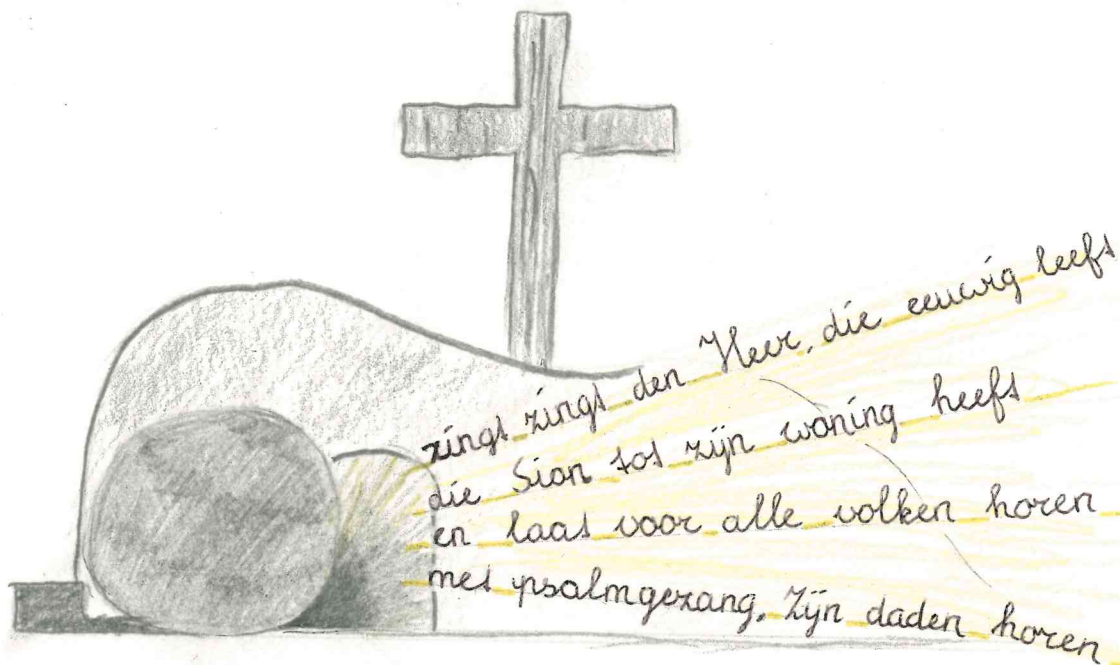 zingt zingt den Heer, die eeuwig leeft
die Sion tot zijn woning heeft
en laat voor alle volken horen
met psalmgezang, Zijn daden horen